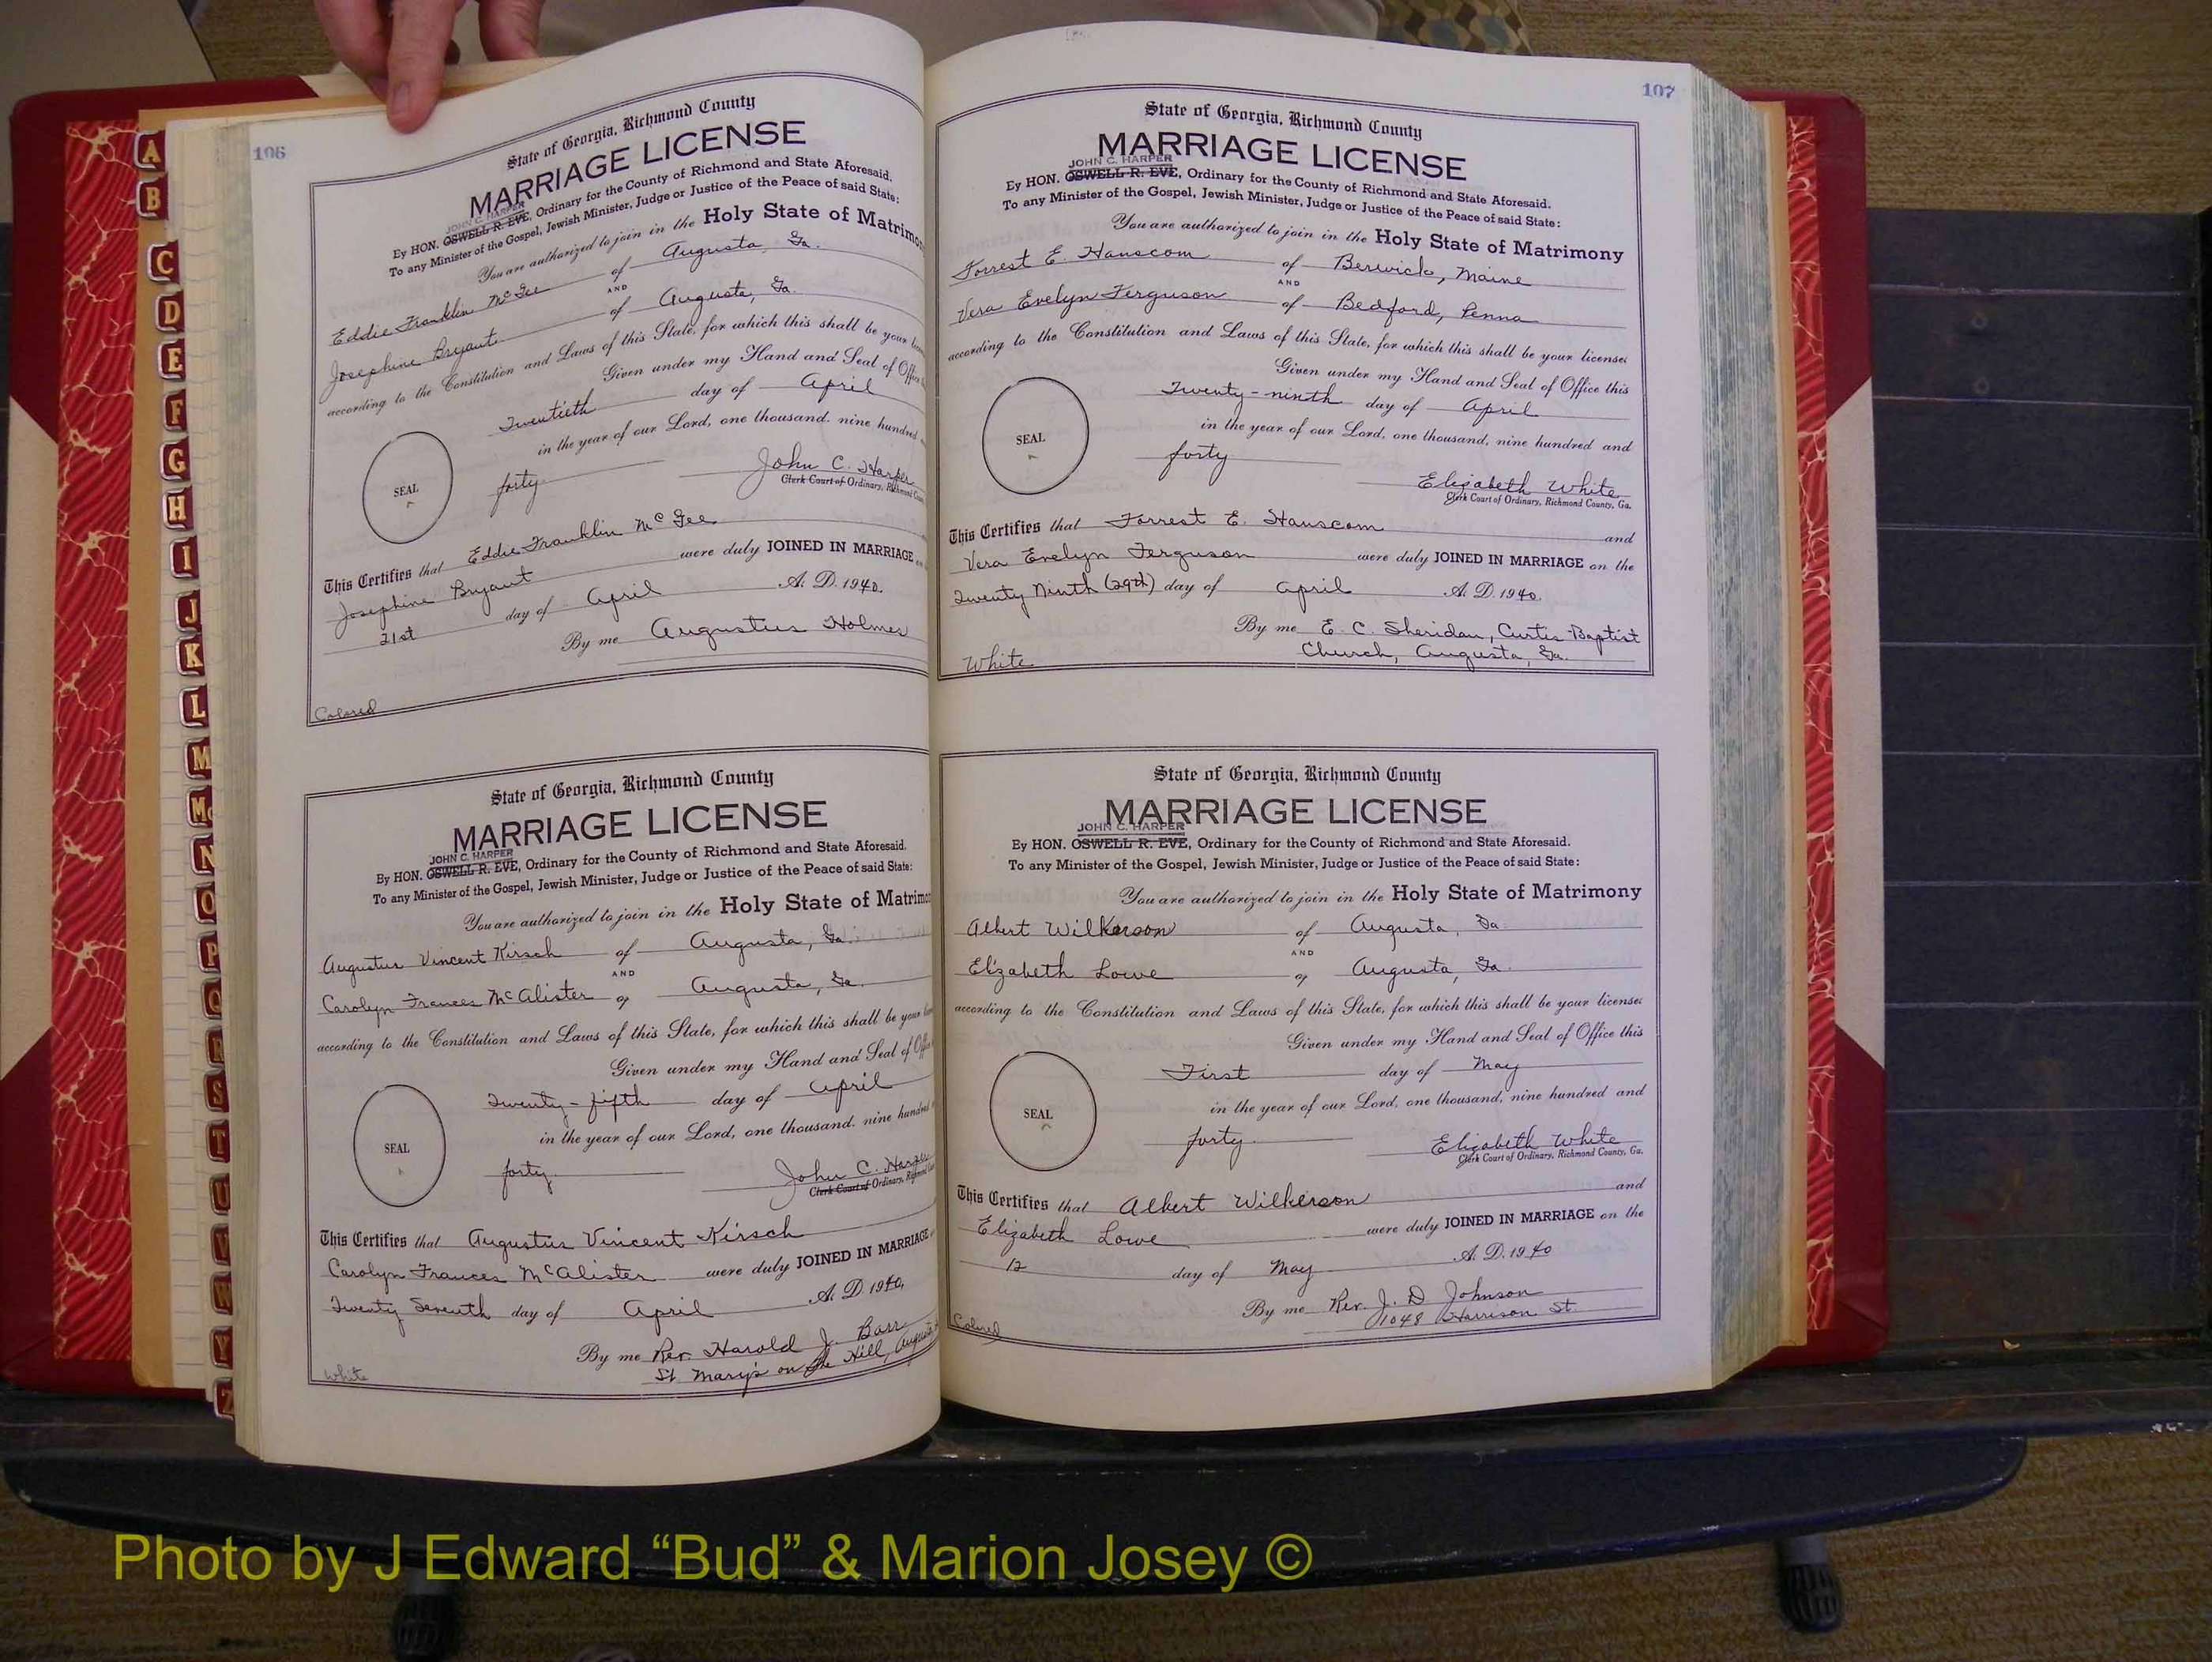 106
State of Georgia, Richmond County
MARRIAGE LICENSE
JOHN C. HARPER
By HON. OSWELL R. EVE, Ordinary for the County of Richmond and State Aforesaid.
To any Minister of the Gospel, Jewish Minister, Judge or Justice of the Peace of said State:
You are authorized to join in the Holy State of Matrimo
Eddie Franklin McGee of Augusta, Ga.
AND
Josephine Bryant of Augusta, Ga.
according to the Constitution and Laws of this State, for which this shall be your
Given under my Hand and Seal of Office
Twentieth day of April
in the year of our Lord, one thousand. nine hundred
forty
John C. Harper
Clerk Court of Ordinary, Richmond
SEAL
This Certifies that Eddie Franklin McGee
Josephine Bryant were duly JOINED IN MARRIAGE
21st day of April A. D. 1940.
By me Augustus Holmes
Colored
State of Georgia, Richmond County
MARRIAGE LICENSE
JOHN C. HARPER
By HON. OSWELL R. EVE, Ordinary for the County of Richmond and State Aforesaid.
To any Minister of the Gospel, Jewish Minister, Judge or Justice of the Peace of said State:
You are authorized to join in the Holy State of Matrimo
Augustus Vincent Kirsch of Augusta, Ga.
AND
Carolyn Frances McAlister of Augusta, Ga.
according to the Constitution and Laws of this State, for which this shall be your
Given under my Hand and Seal of Office
Twenty-fifth day of April
in the year of our Lord, one thousand. nine hundred
forty
John C. Harper
Clerk Court of Ordinary, Richmond
SEAL
This Certifies that Augustus Vincent Kirsch
Carolyn Frances McAlister were duly JOINED IN MARRIAGE
Twenty Seventh day of April A. D. 1940.
By me Rev. Harold J. Barr
St. Mary's on the Hill, Augusta
White
107
State of Georgia, Richmond County
MARRIAGE LICENSE
JOHN C. HARPER
By HON. OSWELL R. EVE, Ordinary for the County of Richmond and State Aforesaid.
To any Minister of the Gospel, Jewish Minister, Judge or Justice of the Peace of said State:
You are authorized to join in the Holy State of Matrimony
Forrest E. Hanscom of Berwick, Maine
AND
Vera Evelyn Ferguson of Bedford, Penna
according to the Constitution and Laws of this State, for which this shall be your license:
Given under my Hand and Seal of Office this
Twenty-ninth day of April
in the year of our Lord, one thousand, nine hundred and
forty
Elizabeth White
Clerk Court of Ordinary, Richmond County, Ga.
SEAL
This Certifies that Forrest E. Hanscom and
Vera Evelyn Ferguson were duly JOINED IN MARRIAGE on the
Twenty Ninth (29th) day of April A. D. 1940.
By me E. C. Sheridan, Curtis Baptist
Church, Augusta, Ga.
White
State of Georgia, Richmond County
MARRIAGE LICENSE
JOHN C. HARPER
By HON. OSWELL R. EVE, Ordinary for the County of Richmond and State Aforesaid.
To any Minister of the Gospel, Jewish Minister, Judge or Justice of the Peace of said State:
You are authorized to join in the Holy State of Matrimony
Albert Wilkerson of Augusta, Ga
AND
Elizabeth Lowe of Augusta, Ga.
according to the Constitution and Laws of this State, for which this shall be your license:
Given under my Hand and Seal of Office this
First day of May
in the year of our Lord, one thousand, nine hundred and
forty.
Elizabeth White
Clerk Court of Ordinary, Richmond County, Ga.
SEAL
This Certifies that Albert Wilkerson and
Elizabeth Lowe were duly JOINED IN MARRIAGE on the
12 day of May A. D. 1940
By me Rev. J. D Johnson
1048 Harrison St.
Colored
A
B
C
D
E
F
G
H
I
J
K
L
M
Mc
N
O
P
Q
R
S
T
U
V
W
Y
Z
Photo by J Edward “Bud” & Marion Josey ©